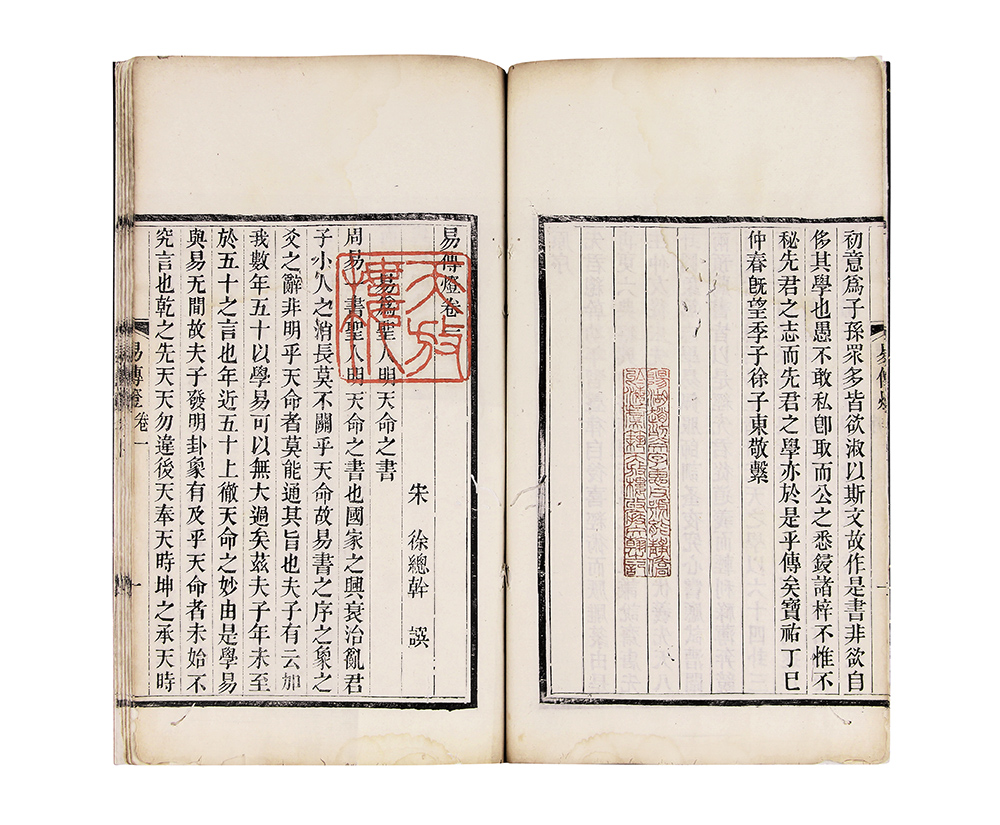 初意爲子孫眾多皆欲淑以斯文故作是書非欲自
侈其學也愚不敢私卽取而公之悉鋟諸梓不惟不
秘先君之志而先君之學亦於是乎傳矣寶祐丁巳
仲春旣望季子徐子東敬繫
易傳燈卷一
宋 徐總幹 譔
易爲聖人明天命之書
周易一書聖人明天命之書也國家之興衰治亂君
子小人之消長莫不關乎天命故易書之序之象之
爻之辭非明乎天命者莫能通其旨也夫子有云加
我數年五十以學易可以無大過矣茲夫子年未至
於五十之言也年近五十上徹天命之妙由是學易
與易无間故夫子發明卦彖有及乎天命者未始不
究言也乾之先天天勿違後天奉天時坤之承天時
易傳燈 卷一
一
天放樓